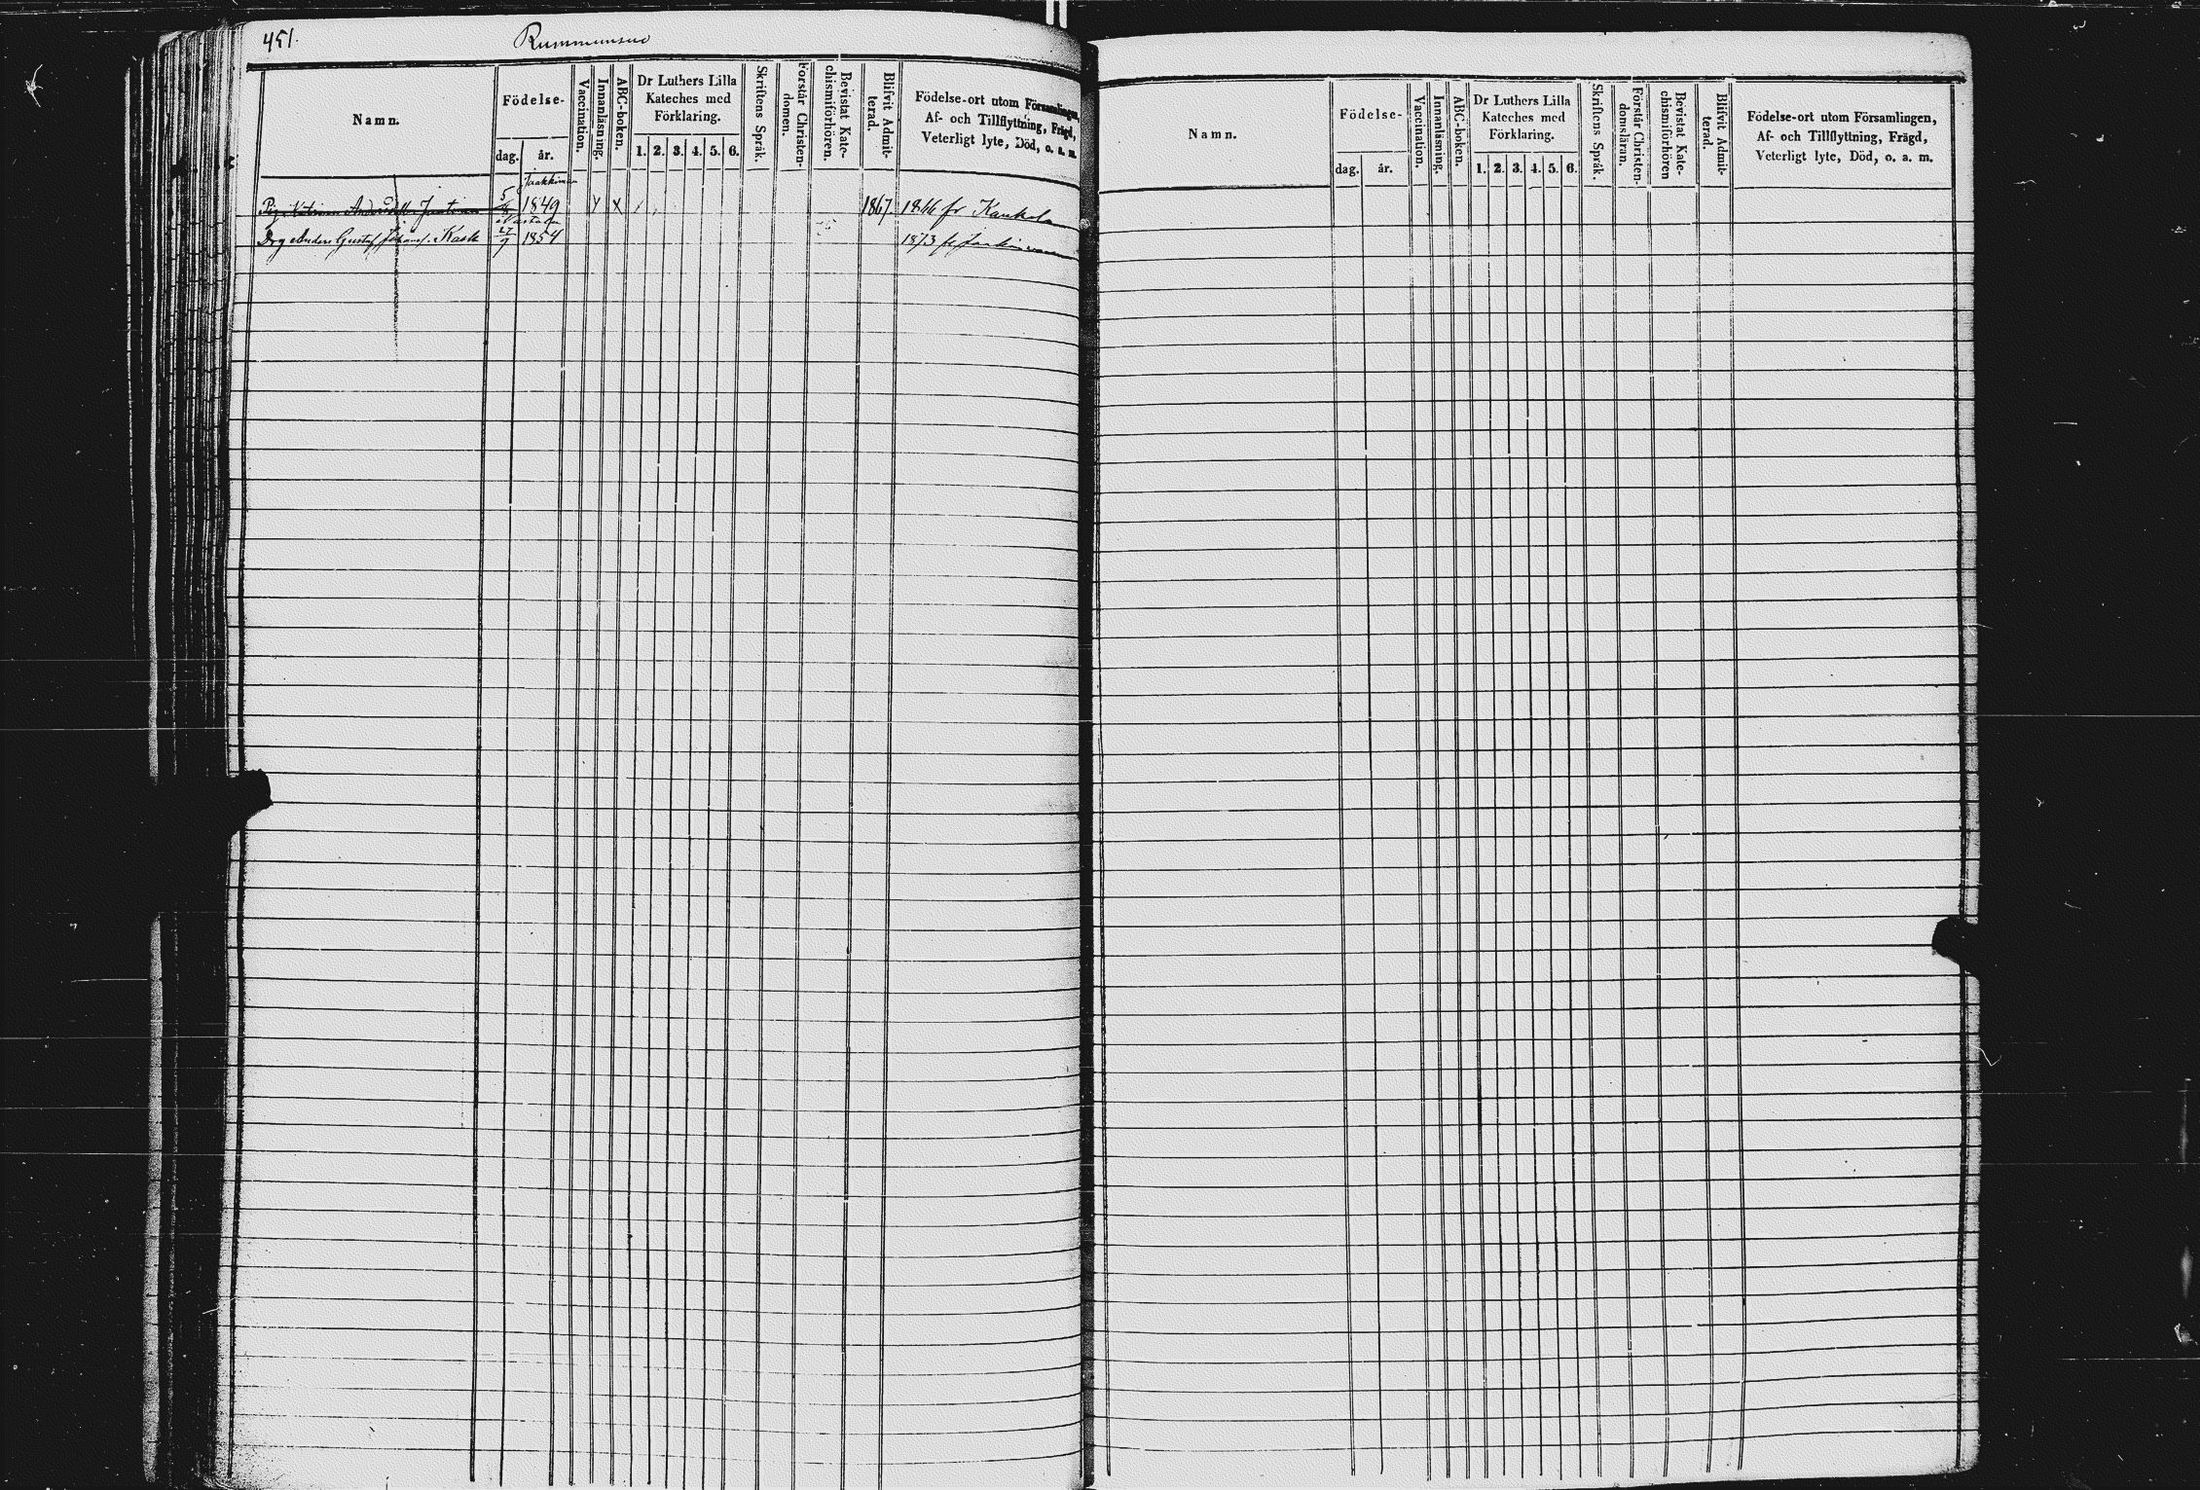 451.
Rummunsuo
Namn.
Födelse-
dag.
år.
Vaccination.
Innanläsning.
ABC-boken.
Dr Luthers Lilla
Kateches med
Förklaring.
1. 2. 3. 4. 5. 6.
Skriftens Språk.
Förstår Christen-
domen.
Bevistat Kate-
chismiförhören.
Blifvit Admit-
terad.
Födelse-ort utom Församlingen,
Af- och Tillflyttning, Frägd,
Veterligt lyte, Död, o. a. m.
Jaakkima
Pig. Katrina Andersdr 5 1849 Y X 1867. 1866 fr Kaukola
Nastola
Drg Anders Gustaf Johans. Kask 27/9 1854 1873 fr Jaakimvaara
Namn.
Födelse-
dag.
år.
Vaccination.
Innanläsning.
ABC-boken.
Dr Luthers Lilla
Kateches med
Förklaring.
1. 2. 3. 4. 5. 6.
Skriftens Språk.
Förstår Christen-
domsläran.
Bevistat Kate-
chismiförhören
Blifvit Admit-
terad.
Födelse-ort utom Församlingen,
Af- och Tillflyttning, Frägd,
Veterligt lyte, Död, o. a. m.